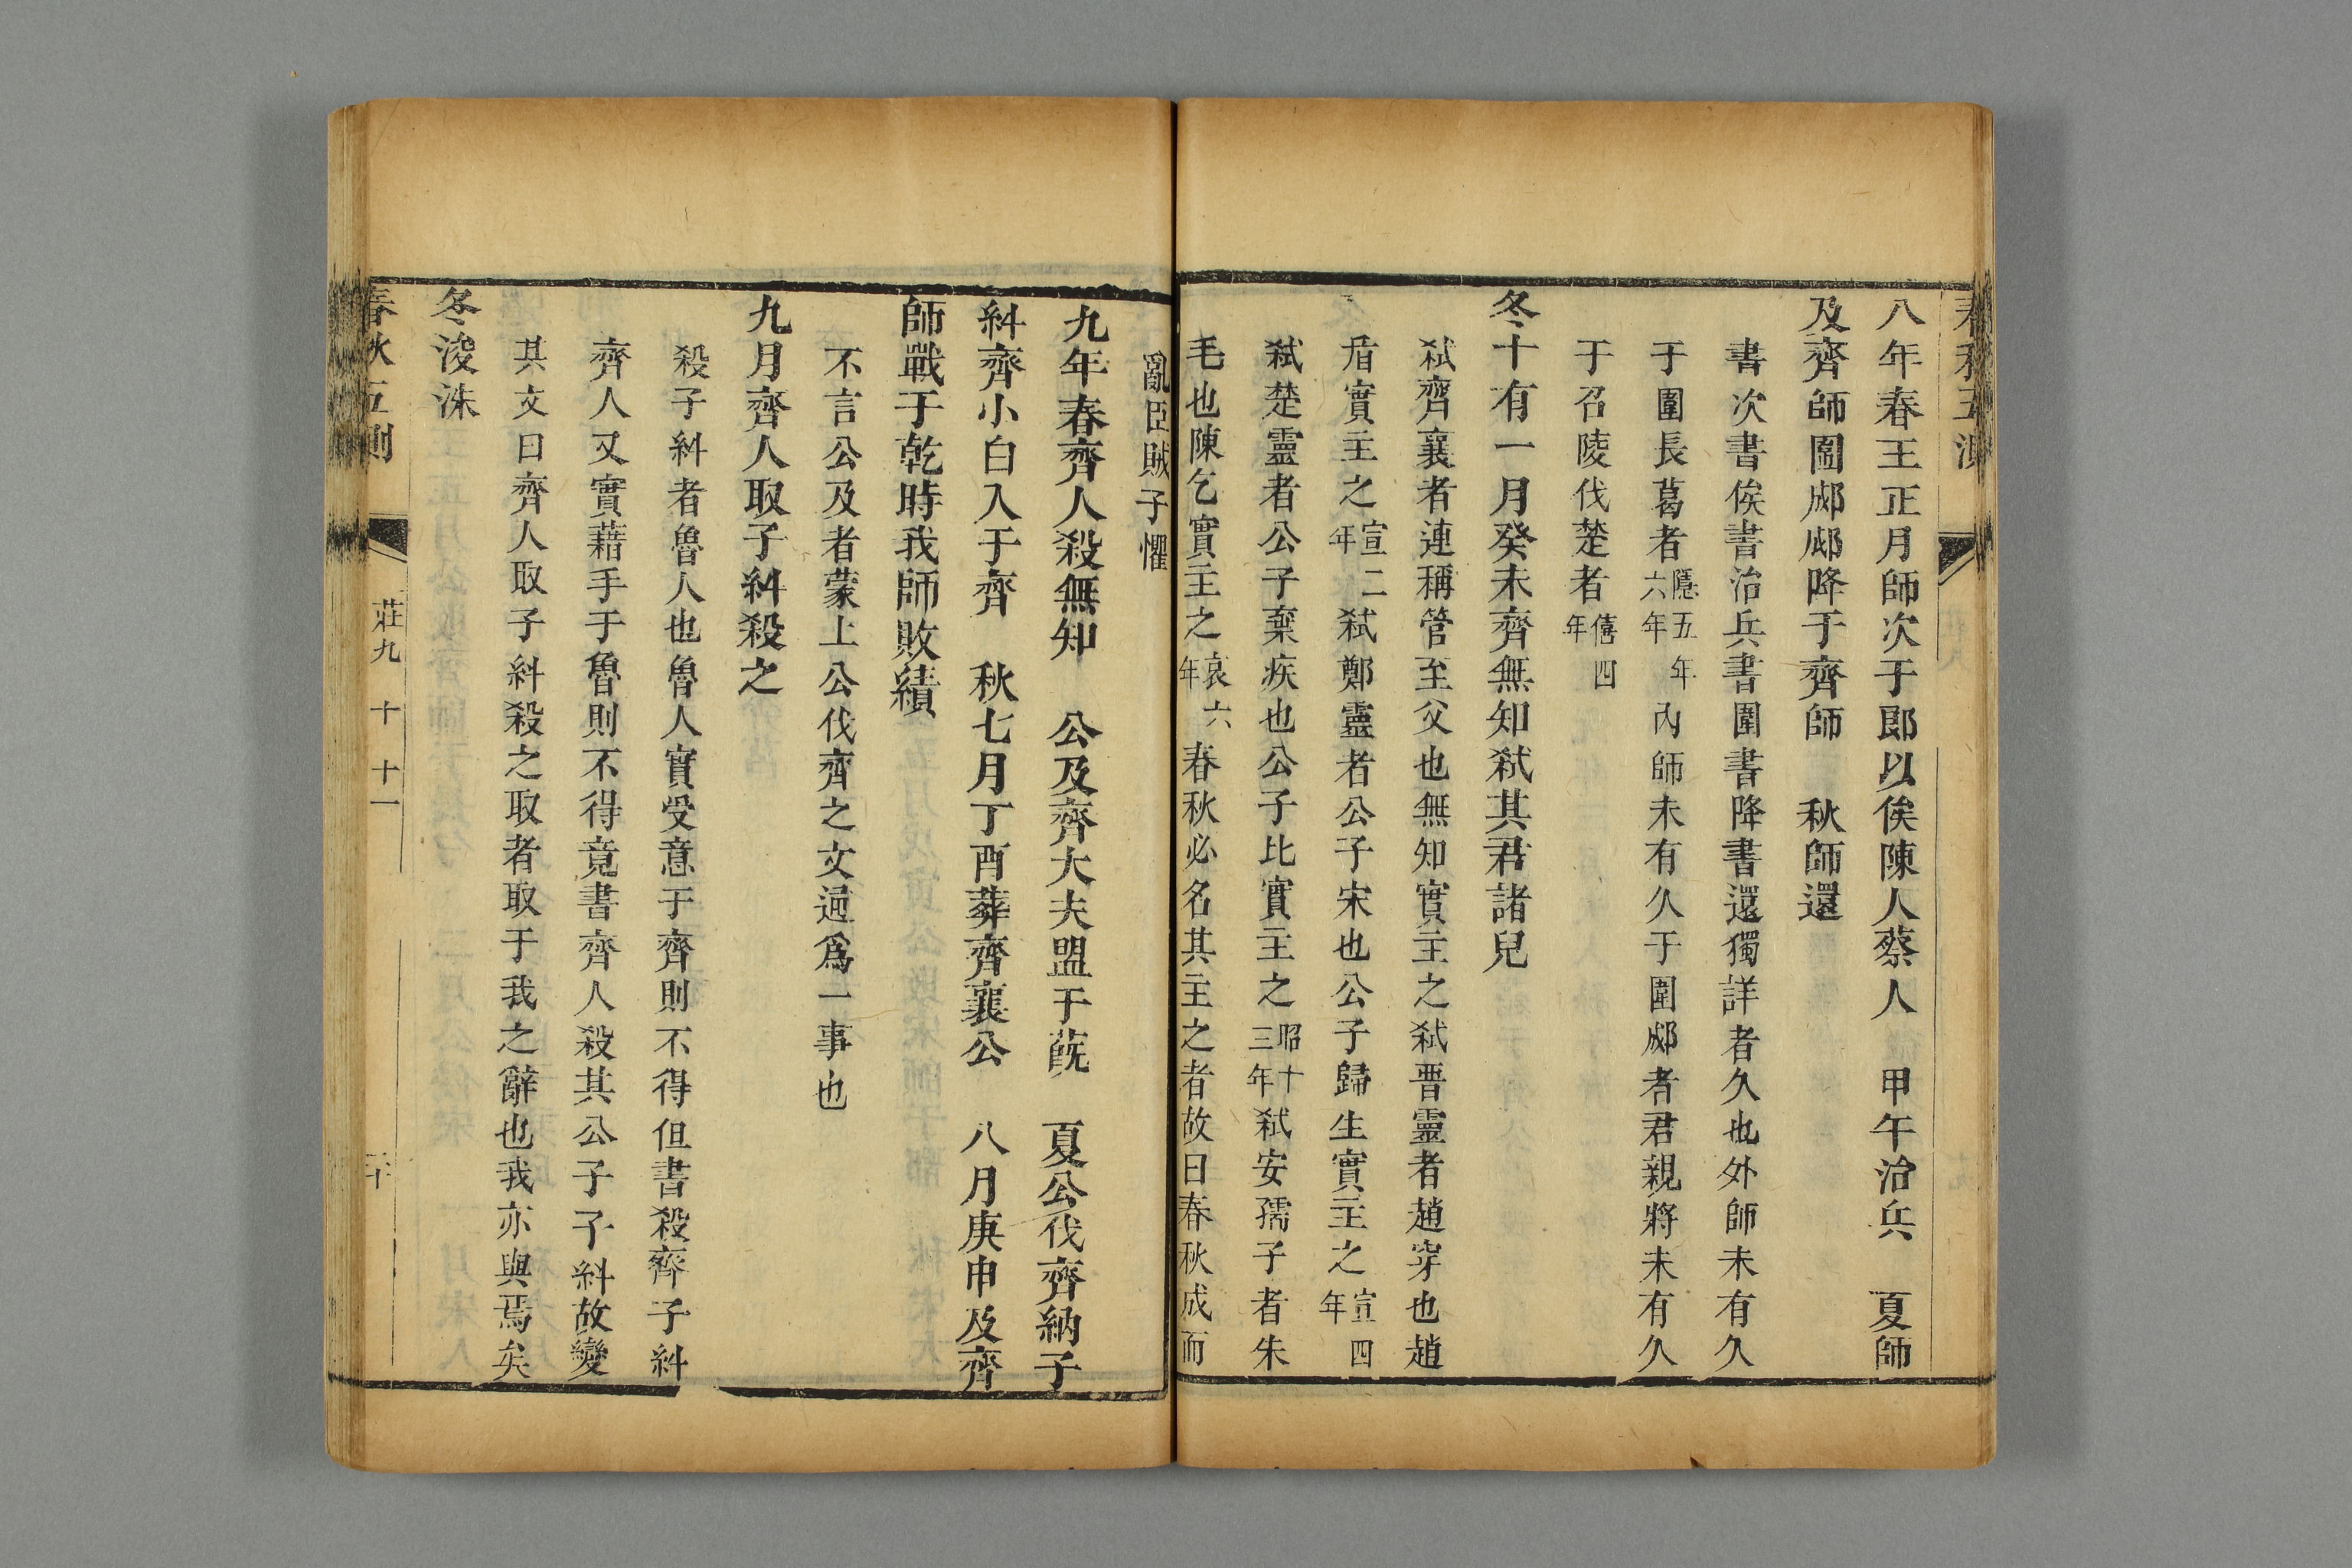 八年春王正月師次于郎以俟陳人蔡人　甲午治兵　夏師
及齊師圍郕郕降于齊師　秋師還
書次書俟書治兵書圍書降書還獨詳者久也外師未有久
于圍長葛者隱五年六年內師未有久于圍郕者君親將未有久
于召陵伐楚者僖四年
冬十有一月癸未齊無知弒其君諸兒
弒齊襄者連稱管至父也無知實主之弒晋靈者趙穿也趙
盾實主之宣二年弒鄭靈者公子宋也公子歸生實主之宣四年
弒楚靈者公子棄疾也公子比實主之昭十三年弒安孺子者朱
毛也陳乞實主之哀六年春秋必名其主之者故曰春秋成而
亂臣賊子懼
九年春齊人殺無知　公及齊大夫盟于蔇　夏公伐齊納子
糾齊小白入于齊　秋七月丁酉葬齊襄公　八月庚申及齊
師戰于乾時我師敗績
不言公及者蒙上公伐齊之文通爲一事也
九月齊人取子糾殺之
殺子糾者魯人也魯人實受意于齊則不得但書殺齊子糾
齊人又實藉手于魯則不得竟書齊人殺其公子子糾故變
其文曰齊人取子糾殺之取者取于我之辭也我亦與焉矣
冬浚洙
莊九　十　十一